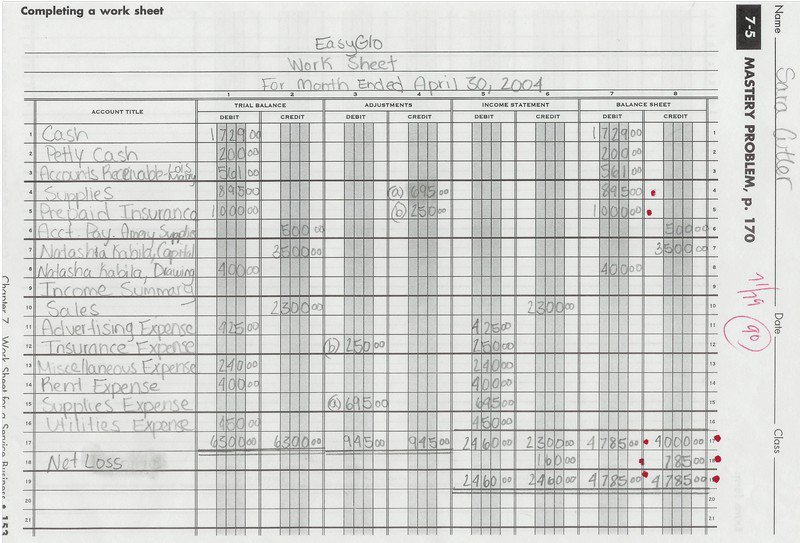 Completing a work sheet
EasyGlo
Work Sheet
For Month Ended April 30, 2004
1 2 3 4 5 6 7 8
ACCOUNT TITLE TRIAL BALANCE ADJUSTMENTS INCOME STATEMENT BALANCE SHEET
DEBIT CREDIT DEBIT CREDIT DEBIT CREDIT DEBIT CREDIT
1 Cash 1729 00 1729 00 1
2 Petty Cash 200 00 200 00 2
3 Accounts Receivable- 561 00 561 00 3
4 Supplies 895 00 (a) 695 00 895 00 4
5 Prepaid Insurance 1000 00 (b) 250 00 1000 00 5
6 Acct. Pay. Supplies 500 00 500 00 6
7 Natasha Kabila, Capital 3500 00 3500 00 7
8 Natasha Kabila, Drawing 400 00 400 00 8
9 Income Summary 9
10 Sales 2300 00 2300 00 10
11 Advertising Expense 425 00 425 00 11
12 Insurance Expense (b) 250 00 250 00 12
13 Miscellaneous Expense 240 00 240 00 13
14 Rent Expense 400 00 400 00 14
15 Supplies Expense (a) 695 00 695 00 15
16 Utilities Expense 450 00 450 00 16
17 6300 00 6300 00 945 00 945 00 2460 00 2300 00 4785 00 4000 00 17
18 Net Loss 160 00 785 00 18
19 2460 00 2460 00 4785 00 4785 00 19
20 20
21 21
Name Sara Cutler
Date
Class
7-5 MASTERY PROBLEM, p. 170
71/79 90
Chapter 7 Work Sheet for a Service Business • 153